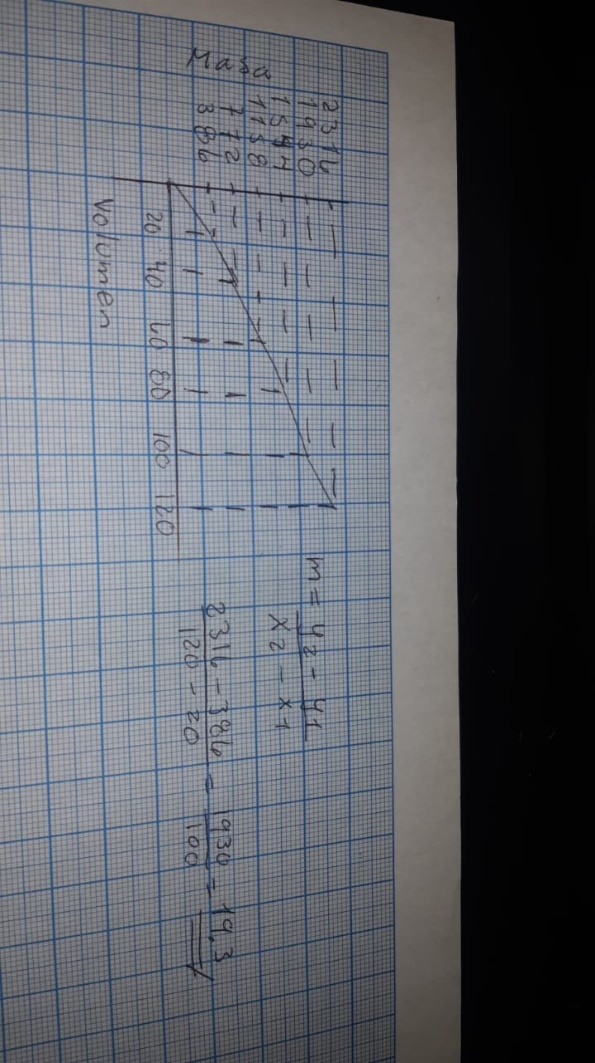 Masa
2316
1930
1544
1158
772
386
20 40 60 80 100 120
Volumen
m = y2 - y1
x2 - x1
2316 - 386 = 1930 = 19,3
120 - 20 100